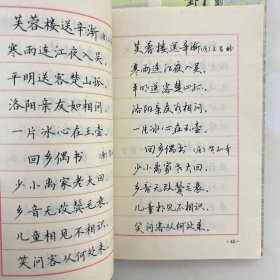 芙蓉楼送辛渐
寒雨连江夜入吴,
平明送客楚山孤。
洛阳亲友如相问,
一片冰心在玉壶。
回乡偶书
少小离家老大回,
乡音无改鬓毛衰。
儿童相见不相识,
笑问客从何处来。
芙蓉楼送辛渐
寒雨连江夜入吴,
平明送客楚山孤。
洛阳亲友如相问,
一片冰心在玉壶。
回乡偶书
少小离家老大回,
乡音无改鬓毛衰。
儿童相见不相识,
笑问客从何处来。